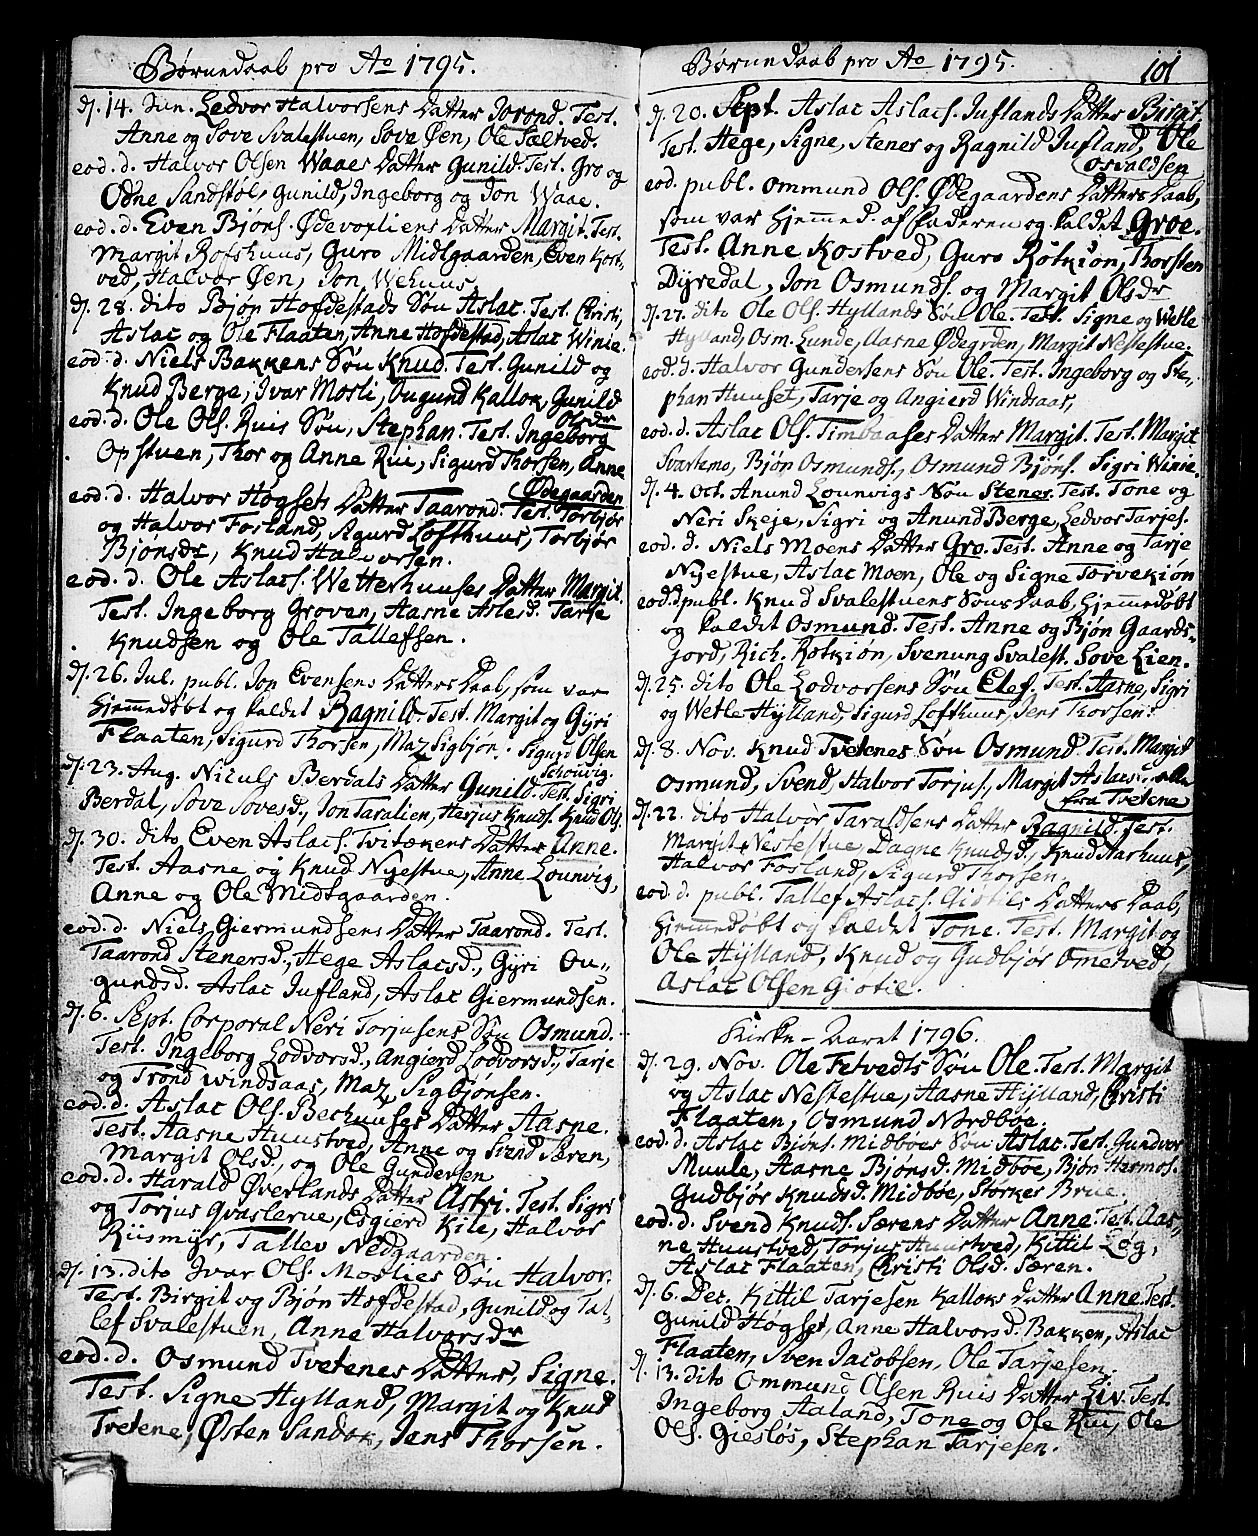 Børnedaab pro Ao 1795.
d. 14. Jun. Ledvor Halvorsens Datter Jorond. Test.
Anne og Sove Svalestuen, Sove Øen, Ole Sæltved.
eod. d. Halvor Olsen Waaes Datter Gunild. Test. Gro og
Odne Sandstøl, Gunild, Ingeborg og Jon Waae.
eod. d. Even Bjøns. Ødevorliens Datter Margit. Test.
Margit Rofshuus, Guro Midtgaarden, Even Kost-
ved, Halvor Øen, Jon Wehuus.
d. 28. dito Bjøn Hofdestads Søn Aslac. Test. Christi,
Aslac og Ole Flaaten, Anne Hofdestad, Aslac Winie.
eod. d. Niels Bakkens Søn Knud. Test. Gunild og
Knud Berge, Ivar Mosli, Gunild
Olsdr
eod. d. Ole Ols. Ruis Søn, Stephan. Test. Ingeborg
Opstuen, Thor og Anne Rui, Sigurd Thorsen, Anne
Ødegaarden
eod. d. Halvor Høgsets Datter Taarond. Test. Torbjør
og Halvor Fosland, Agurd Lofthuus, Torbjør
Bjønsdr, Knud Halvorsen.
eod. d. Ole Aslacs. Wetterhuuses Datter Margit.
Test. Ingeborg Groven, Aasne Aslesd. Tarje
Knudsen og Ole Tallefsen.
d. 26. Jul. publ. Jon Evensens Datters Daab, som var
hjemmedøbt og kaldet Ragnild. Test. Margit og Gyri
Flaaten, Sigurd Thorsen, Maz Sigbjøn. Sigurd Olsen
Schouvig.
d. 23. Aug. Niculs Berdals Datter Gunild. Test. Sigri
Berdal, Sove Sovesd., Jon Taralien, Herjus Knuds. Knud Ols.
d. 30. dito, Even Aslacs. Tvitækens Datter Anne.
Test. Aasne og Knud Nyestue, Anne Lounvig,
Anne og Ole Midtgaarden.
eod. d. Niels Giermundsens Datter Taarond. Test.
Taarond Stenersd., Hege Aslacsd., Gyri On-
gundsd. Aslac Jufland, Aslac Giermundsen.
d. 6. Sept. Corporal Neri Torjusens Søn Osmund.
Test. Ingeborg Lodvorsd., Angierd Lodvorsd., Tarje
og Trond Windsaas, Maz Sigbjønsen.
eod. d. Aslac Ols. Berhuuses Datter Aasne.
Test. Aasne Huustved, Anne og Svend Særen,
Margit Olsd. og Ole Gundersen
eod. d. Harald Øverlands Datter Astri. Test. Sigri
og Torjus Qvaslerue, Esgierd Kile, Halvor
Riismyr, Tallev Nedgaarden.
d. 13. dito Ivar Ols. Moslies Søn Halvor.
Test. Birgit og Bjøn Hofdestad, Gunild og Tal-
lef Svalestuen, Anne Halvorsdr
eod. d. Osmund Tvetenes Datter, Signe.
Test. Signe Hylland, Margit og Knud
Tvetene, Østen Sandok, Jens Thorsen.
Børnedaab pro Ao 1795. 101
d. 20. Sept. Aslac Aslacs. Juflands Datter Birgit.
Test. Hege, Signe, Stener og Ragnild Jufland, Ole
Osvaldsen
eod. publ. Ommund Ols. Ødegaardens Datters Daab,
som var hjemmed. af Faderen og kaldet Groe.
Test. Anne Kostved, Guro Rotkiøn, Thorsten
Dyredal, Jon Osmunds. og Margit Olsdr
d. 27. dito Ole Ols. Hyllands Søn Ole. Test. Signe og Wetle
Hylland, Osm. Lunde, Aasne Ødegrden, Margit Nestestue.
eod. d. Halvor Gundersens Søn Ole. Test. Ingeborg og Ste-
phan Huuset, Tarje og Angierd Windsaas,
eod. d. Aslac Ols. Timbaases Datter Margit. Test. Margit
Svartemo, Bjøn Osmunds., Osmund Bjøns. Sigri Winie.
d. 4. Oct. Anund Lounvigs Søn Stener. Test. Tone og
Neri Skeje, Sigri og Anund Berge, Ledvor Tarjes.
eod. d. Niels Moens Datter Gro. Test. Anne og Tarje
Nyestue, Aslac Moen, Ole og Signe Torvekiøn
eod. d. publ. Knud Svalestuens Søns Daab, hjemmedøbt
og kaldet Osmund. Test. Anne og Bjøn Gaards-
jord, Rich. Rotkiøn, Svenung Svalest. Sove Lien.
d. 25. dito Ole Lodvorsens Søn Elef. Test. Aasne, Sigri
og Wetle Hylland, Sigurd Lofthuus, Jens Thorsen.
d. 8. Nov. Knud Tvetenes Søn Osmund. Test. Margit
Osmund, Svend, Halvor Torjus., Margit Aslacsd. alle
fra Tvetene
d. 22. dito Halvor Taraldsens Datter Ragnild. Test.
Margit Nestestue Dagne Knudsd., Knud Aarhuus,
Halvor Fosland, Sigurd Thorsen.
eod. d. publ. Tallef Aslacs. Giøtiles Datters Daab,
hjemmedøbt og kaldet Tone. Test. Margit og
Ole Hylland, Knud og Gudbjør Ometved,
Aslac Olsen Giøtil.
Kirke-Aaret 1796.
d. 29. Nov. Ole Fetvedts Søn Ole. Test. Margit
og Aslac Nestestue, Aasne Hylland, Christi
Flaaten, Osmund Nordbøe.
eod. d. Aslac Bjøns. Midbøes Søn Aslac. Test. Gundvor
Muule, Aasne Bjønsd. Midbøe, Bjøn Hermos.
Gudbjør Knudsd. Midbøe, Størker Brue.
eod. d. Svend Knuds. Særens Datter Anne. Test. Aas-
ne Huustved, Torjus Huustved, Kittil Løg,
Aslac Flaaten, Christi Olsd. Særen.
d. 6. Dec. Kittil Tarjesen Kalloks Datter Anne. Test.
Gunild Høgset, Anne Halvorsd. Bakken, Aslac
Flaaten, Sven Jacobsen, Ole Tarjesen.
d. 13. dito Ommund Olsen Ruis Datter Liv. Test.
Ingeborg Aaland, Tone og Ole Rui, Ole
Ols. Giesløs, Stephan Tarjesen.